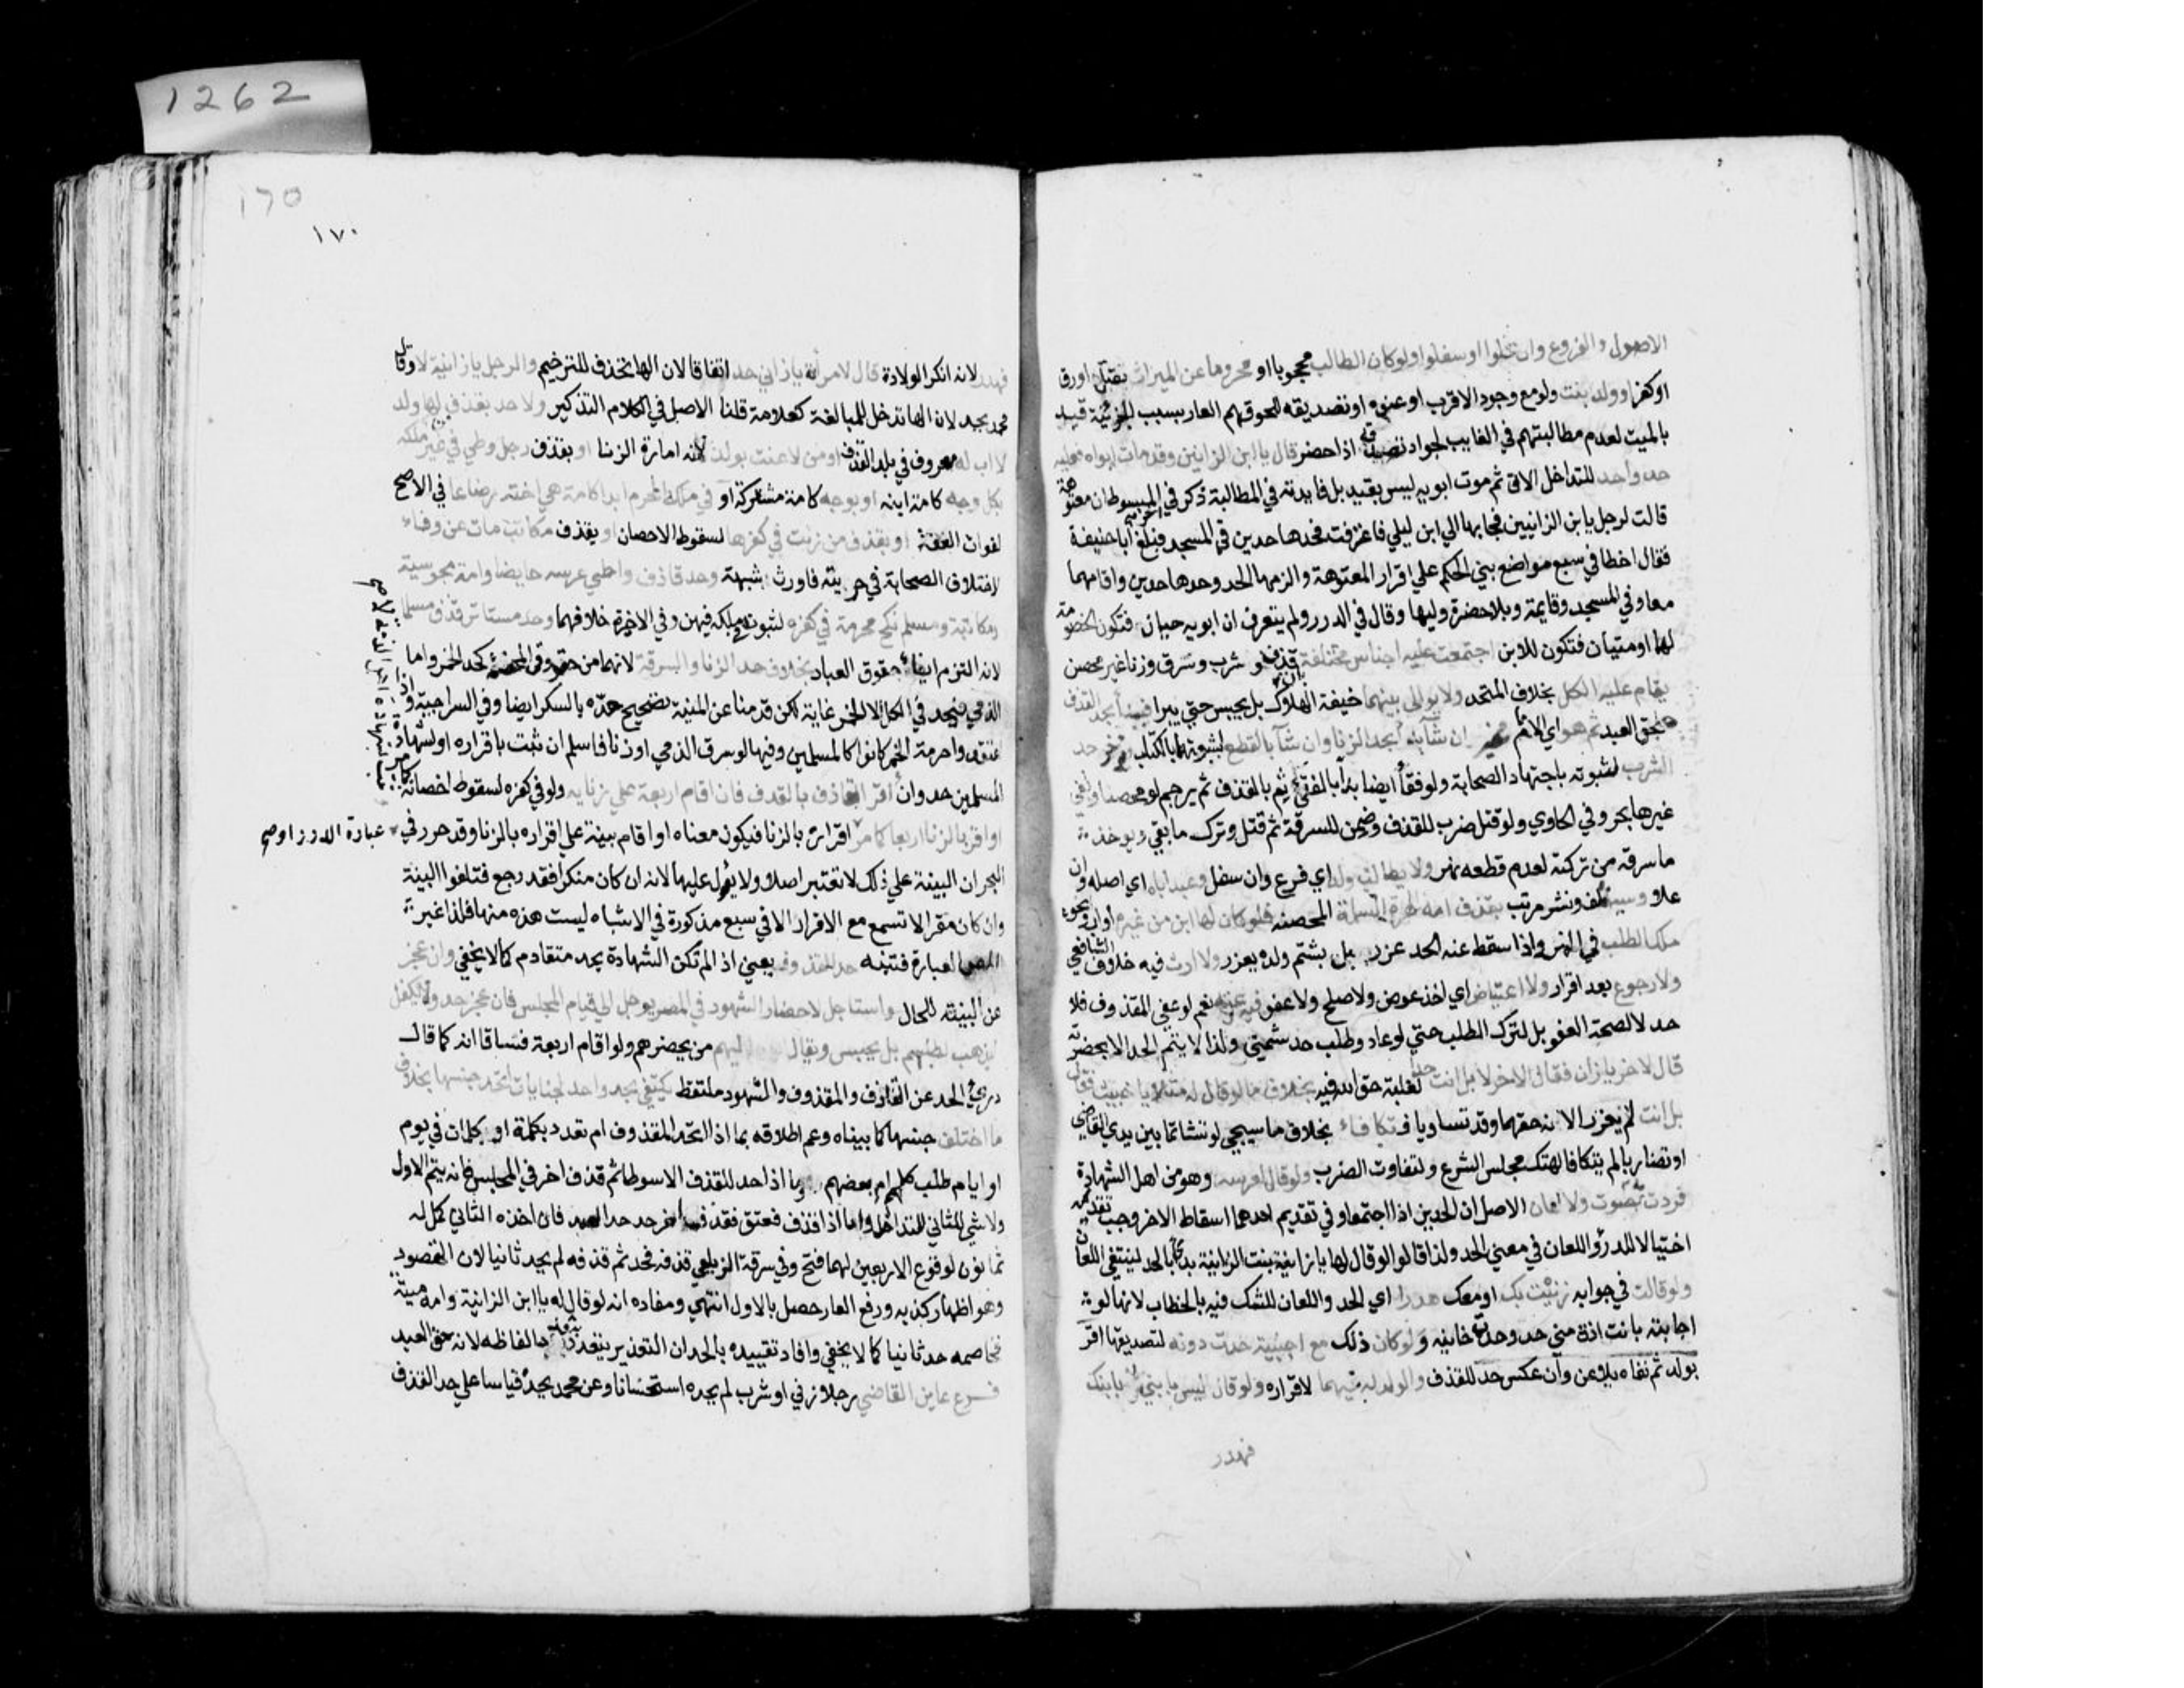 1262
الاصول والفروع وان علوا او سفلوا ولو كان الطالب محجوبا او محروما عن الميراث بقتل او رق
او كفر او ولد بنت ولو مع وجود الاقرب او عفوه او تصديقه للحوقهم العار بسبب الجزئية قيد
بالميت لعدم مطالبتهم في الغايب لجواز تصديقه اذا حضر قال يا ابن الزانيين وقد مات ابواه فعليه
حد واحد للتداخل الاتي ثم موت ابويه ليس بقيد بل فايدته في المطالبة ذكر في المبسوط ان معتوهة
قالت لرجل يا بن الزانيين فجا بها الي ابن ليلي فاعترفت فحدها حدين في المسجد فبلغ ابا حنيفة
فقال اخطا في سبع مواضع بني الحكم علي اقرار المعتوهة والزمها الحد وحدها حدين واقامهما
معا وفي المسجد وقايمة وبلا حضرة وليها وقال في الدرر ولم يتعرف ان ابويه حيان فتكون الخصومة
لهما او ميتان فتكون للابن اجتمعت عليه اجناس مختلفة بان قذف وشرب وسرق وزنا غير محصن
يقام عليه الكل بخلاف المتحد ولا يوالى بينهما خيفة الهلاك بل يحبس حتي يبرا فيبدأ بحد القذف
لحق العبد ثم هو اي الامام مخير ان شآ بدأ بحد الزنا وان شآ بالقطع لثبوتهما بالكتاب ويؤخر حد
الشرب لثبوته باجتهاد الصحابة ولو فقأ ايضا بدأ بالفقئ ثم بالقذف ثم يرجم لو محصنا ولغي
غيرها بحر وفي الحاوي ولو قتل ضرب للقذف وضمن للسرقة ثم قتل وترك ما بقي ويوخذ
ما سرقه من تركته لعدم قطعه نهر ولا يطالب ولد اي فرع وان سفل وعبد اباه اي اصله وان
علا وسيده لف ونشر مرتب بقذف امه الحرة المسلمة المحصنة فلو كان لها ابن من غيره او اب ونحوه
ملك الطلب في النهر واذا سقط عنه الحد عزر بل بشتم ولده يعزر ولا ارث فيه خلاف الشافعي
ولا رجوع بعد اقرار ولا اعتياض اي اخذ عوض ولا صلح ولا عفو فيه وعنه نعم لو عفي المقذوف فلا
حد لا لصحة العفو بل لترك الطلب حتي لو عاد وطلب حد شمني ولذا لا يتم الحد الا بحضرته
قال لاخر يا زان فقال الاخر لا بل انت حدا لغلبة حق الله فيه بخلاف ما لو قال له مثلا يا خبيث فقال
بل انت لم يعزرا لانه حقهما وقد تساويا فتكافاء بخلاف ما سيجي لو تشاتما بين يدي القاضي
او تضاربا لم يتكافا لهتك مجلس الشرع ولتفاوت الضرب ولو قال لعرسه وهو من اهل الشهادة
فردت به حدت ولا لعان الاصل ان الحدين اذا اجتمعا وفي تقديم احدهما اسقاط الاخر وجب تقديمه
احتيالا للدرؤ واللعان في معني الحد ولذا قالوا لو قال لها يا زانية بنت الزانية بدأ بالحد لينتفي اللعان
ولو قالت في جوابه زنيت بك او معك هدرا اي الحد واللعان للشك فيه بالخطاب لانها لو
اجابته بانت ازني مني حد وحده خانيه ولو كان ذلك مع اجنبية حدت دونه لتصديقها اقر
بولد ثم نفاه يلاعن وان عكس حد للقذف والولد له فيهما لاقراره ولو قال ليس بابني ولا بابنك
فهدر
١٦٥
١٧٠
فهدر لانه انكر الولادة قال لامرأة يا زاني حد اتفاقا لان الها تحذف للترخيم والرجل يا زانية لا وقال
محمد يحد لان الها تدخل للمبالغة كعلامة قلنا الاصل في الكلام التذكير ولا حد بقذف لها ولد
لا اب له معروف في بلد القذف او من لاعنت بولد لانه امارة الزنا او بقذف رجل وطي في غير ملكه
بكل وجه كامة ابنه او بوجه كامة مشتركة او في ملكه المحرم ابدا كامة هي اخته رضاعا في الاصح
لفوات العفة او بقذف من زنت في كفرها لسقوط الاحصان او بقذف مكاتب مات عن وفاء
لاختلاف الصحابة في حريته فاورث شبهة وحد قاذف واطي عرسه حايضا وامة مجوسية
ومكاتبة ومسلم نكح محرمة في كفره لثبوت ملكه فيهن وفي الاخيرة خلافهما وحد مستامن قذف مسلما
لانه التزم ايفاء حقوق العباد بخلاف حد الزنا والسرقة لانهما من حقوق الله المحضة كحد الخمر واما
الذمي فيحد في الكل الا الخمر غاية لكن قدمنا عن المنية تصحيح حده بالسكر ايضا وفي السراجية واذا
اعتقدوا حرمة الخمر كانوا كالمسلمين وفيها لو سرق الذمي او زنا فاسلم ان ثبت باقراره او بشهادة
المسلمين حد وان اقر القاذف بالقذف فان اقام اربعة علي زنايه ولو في كفره لسقوط احصانه
او اقر بالزنا اربعا كما مر اقراره بالزنا فيكون معناه او اقام بينة علي اقراره بالزنا وقد حرر في
عبارة الدرر اوصح
البحر ان البينة علي ذلك لا تعتبر اصلا ولا يعول عليها لانه ان كان منكرا فقد رجع فتلغوا البينة
وان كان مقرا لا تسمع مع الاقرار الا في سبع مذكورة في الاشباه ليست هذه منها فلذا غير
المص العبارة فتنبه حد المقذوف يعني اذا لم تكن الشهادة بحد متقادم كما لا يخفي وان عجز
عن البينة للحال واستاجل لاحضار الشهود في المصر يوجل الي قيام المجلس فان عجز حد ولا يكفل
ليذهب لطلبهم بل يحبس ويقال ابعث اليهم من يحضرهم ولو اقام اربعة فساقا انه كما قال
درئ الحد عن القاذف والمقذوف والشهود ملتقط يكتفي بحد واحد لجنايات اتحد جنسها بخلاف
ما اختلف جنسها كما بيناه وعم اطلاقه بما اذا اتحد المقذوف ام تعدد بكلمة او كلمات في يوم
او ايام طلب كلهم ام بعضهم وما اذا حد للقذف الا سوطا ثم قذف اخر في المجلس فانه يتم الاول
ولا شي للثاني للتداخل واما اذا قذف فعتق فقذف اخر حد حد العبد فان اخذه الثاني كمل له
ثمانون لوقوع الاربعين لهما فتح وفي سرقة الزيلعي قذفه فحد ثم قذفه لم يحد ثانيا لان المقصود
وهو اظهار كذبه ورفع العار حصل بالاول انتهي ومفاده انه لو قال له يا ابن الزانية وامه ميتة
فخاصمه حد ثانيا كما لا يخفي وافاد تقييده بالحد ان التعذير يتعدد بتعدد الفاظه لانه حق العبد
فرع عاين القاضي رجلا زني او شرب لم يحده استحسانا وعن محمد يحده قياسا علي حد القذف